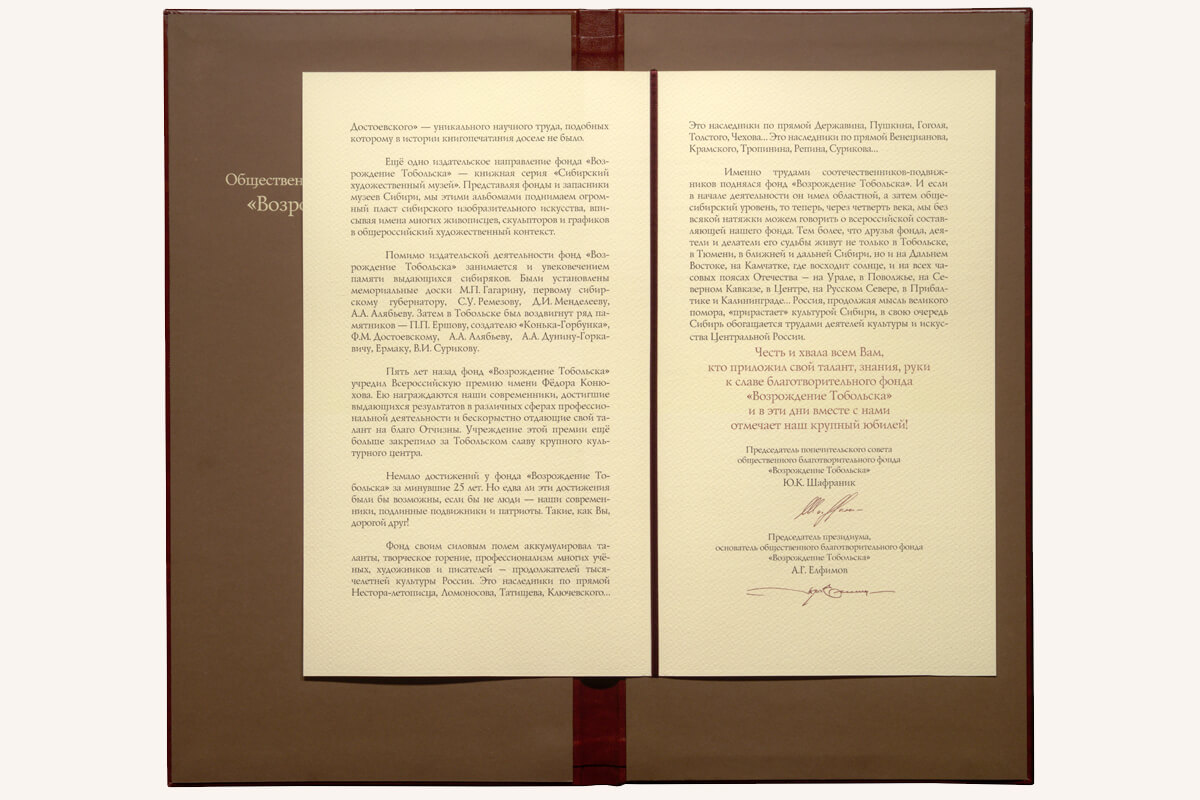 Обществен
«Возро
Достоевского» — уникального научного труда, подобных
которому в истории книгопечатания доселе не было.
Ещё одно издательское направление фонда «Воз-
рождение Тобольска» — книжная серия «Сибирский
художественный музей». Представляя фонды и запасники
музеев Сибири, мы этими альбомами поднимаем огром-
ный пласт сибирского изобразительного искусства, впи-
сывая имена многих живописцев, скульпторов и графиков
в общероссийский художественный контекст.
Помимо издательской деятельности фонд «Воз-
рождение Тобольска» занимается и увековечением
памяти выдающихся сибиряков. Были установлены
мемориальные доски М.П. Гагарину, первому сибир-
скому губернатору, С.У. Ремезову, Д.И. Менделееву,
А.А. Алябьеву. Затем в Тобольске был воздвигнут ряд па-
мятников — П.П. Ершову, создателю «Конька-Горбунка»,
Ф.М. Достоевскому, А.А. Алябьеву, А.А. Дунину-Горка-
вичу, Ермаку, В.И. Сурикову.
Пять лет назад фонд «Возрождение Тобольска»
учредил Всероссийскую премию имени Фёдора Коню-
хова. Ею награждаются наши современники, достигшие
выдающихся результатов в различных сферах профессио-
нальной деятельности и бескорыстно отдающие свой та-
лант на благо Отчизны. Учреждение этой премии ещё
больше закрепило за Тобольском славу крупного куль-
турного центра.
Немало достижений у фонда «Возрождение То-
больска» за минувшие 25 лет. Но едва ли эти достижения
были бы возможны, если бы не люди — наши современ-
ники, подлинные подвижники и патриоты. Такие, как Вы,
дорогой друг!
Фонд своим силовым полем аккумулировал та-
ланты, творческое горение, профессионализм многих учё-
ных, художников и писателей — продолжателей тыся-
челетней культуры России. Это наследники по прямой
Нестора-летописца, Ломоносова, Татищева, Ключевского...
Это наследники по прямой Державина, Пушкина, Гоголя,
Толстого, Чехова... Это наследники по прямой Венецианова,
Крамского, Тропинина, Репина, Сурикова...
Именно трудами соотечественников-подвиж-
ников поднялся фонд «Возрождение Тобольска». И если
в начале деятельности он имел областной, а затем обще-
сибирский уровень, то теперь, через четверть века, мы без
всякой натяжки можем говорить о всероссийской состав-
ляющей нашего фонда. Тем более, что друзья фонда, дея-
тели и делатели его судьбы живут не только в Тобольске,
в Тюмени, в ближней и дальней Сибири, но и на Дальнем
Востоке, на Камчатке, где восходит солнце, и на всех ча-
совых поясах Отечества — на Урале, в Поволжье, на Се-
верном Кавказе, в Центре, на Русском Севере, в Прибал-
тике и Калининграде... Россия, продолжая мысль великого
помора, «прирастает» культурой Сибири, в свою очередь
Сибирь обогащается трудами деятелей культуры и искус-
ства Центральной России.
Честь и хвала всем Вам,
кто приложил свой талант, знания, руки
к славе благотворительного фонда
«Возрождение Тобольска»
и в эти дни вместе с нами
отмечает наш крупный юбилей!
Председатель попечительского совета
общественного благотворительного фонда
«Возрождение Тобольска»
Ю.К. Шафраник
Председатель президиума,
основатель общественного благотворительного фонда
«Возрождение Тобольска»
А.Г. Елфимов